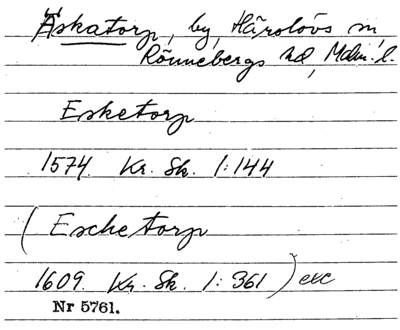 Äskatorp, by, Härslövs sn,
Rönnebergs hd, Malm. l.
Esketorp
1574. Kr. Sk. 1:144
(Eschetorp
1609. Kr. Sk. 1:361) etc
Nr 5761.